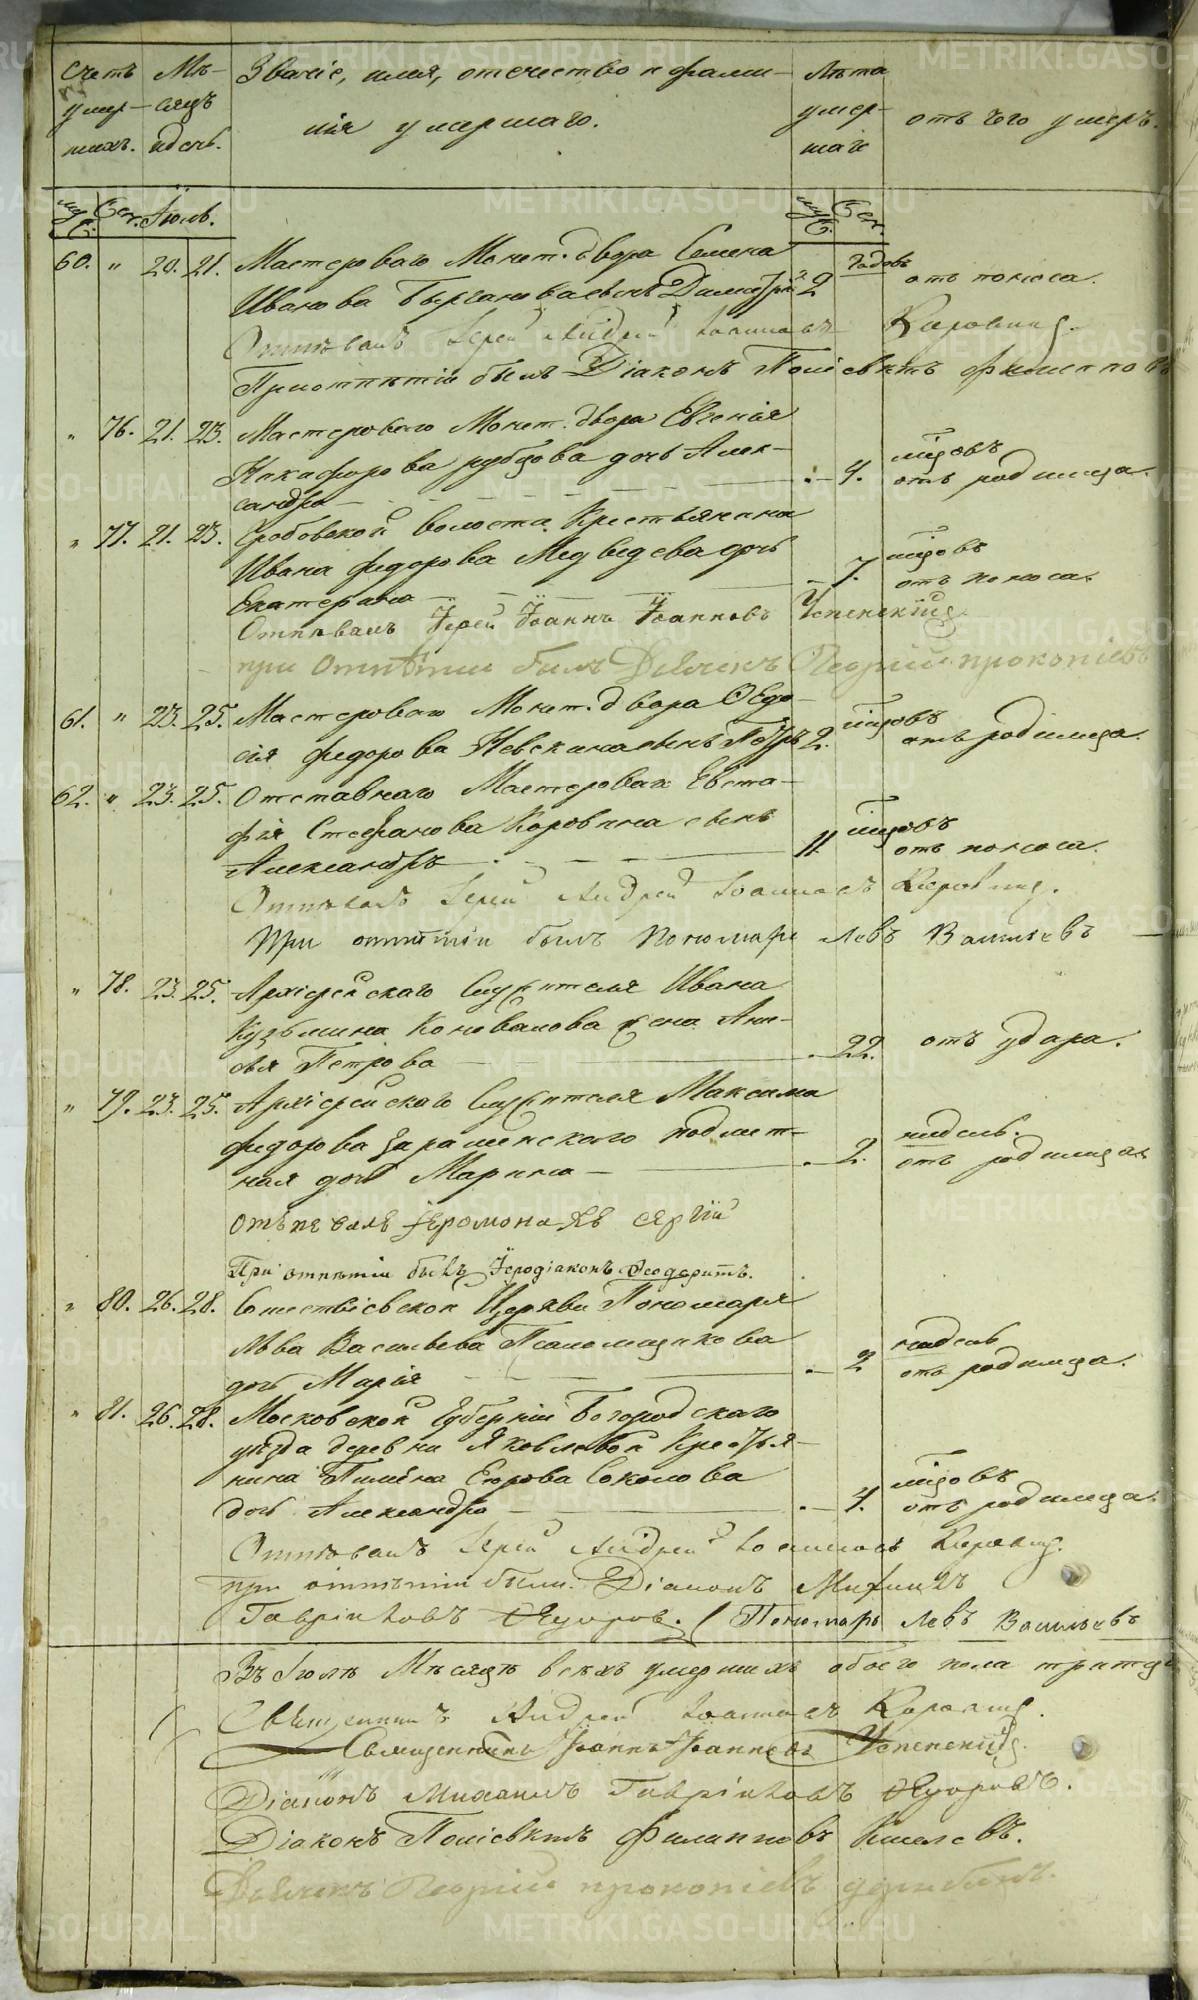 Счетъ умер-шихъ. Мѣ-сяцъ и день. Званіе, имя, отчество и фами-
лія умершаго.
Лѣта умер-шаго
отъ чего умеръ.
муж. жен. Іюль. муж. жен.
60. " 20. 21. Мастероваго Монет. двора Семена
Иванова сынъ Димитрій 2 годовъ отъ поноса.
Отпѣвалъ Іерей Андрей Іоанновъ Коровинъ.
При отпѣтіи былъ Діаконъ Поліевктъ Филипповъ
" 76. 21. 23. Мастероваго Монет. двора Евгенія
Никифорова Рубцова дочь Алек-
сандра 4. мѣсяцовъ отъ родимца.
" 77. 21. 23. Гробовской волости Крестьянина
Ивана Федорова Медведева дочь
Екатерина 7. мѣсяцовъ отъ поноса.
Отпѣвалъ Іерей Іоаннъ Іоанновъ Успенскій
при Отпѣтіи былъ Дьячекъ Георгій прокопіевъ
61. " 23. 25. Мастероваго Монет. двора Ѳедо-
сія Федорова сынъ Петръ 2. мѣсяцовъ отъ родимца.
62. " 23. 25. Отставнаго Мастероваго Евста-
фія Стефанова Коровина сынъ
Александръ 11. мѣсяцовъ отъ поноса.
Отпѣвалъ Іерей Андрей Іоанновъ Коровинъ.
При отпѣтіи былъ Пономарь Левъ Васильевъ
" 78. 23. 25. Архіерейскаго Служителя Ивана
Кузьмина Коновалова жена Ани-
сья Петрова 22. отъ удара.
" 79. 23. 25. Архіерейскаго Служителя Максима
Федорова подмет-
ная дочь Марина 2. недель. отъ родимца
Отъпевалъ Іеромонахъ Сергій
При отпѣтіи былъ Іеродіаконъ Ѳеодоритъ.
" 80. 26. 28. Сошествіевской Церкви Пономаря
Льва Васильева Псаломщикова
дочь Марія 2 недель отъ родимца.
" 81. 26. 28. Московской Губерніи Богородскаго
уѣзда деревни Яковлевой Крестья-
нина Пимена Егорова Соколова
дочь Александра 4. мѣсяцовъ отъ родимца.
Отпѣвалъ Іерей Андрей Іоанновъ Коровинъ.
при отпѣтіи были: Діаконъ Михаилъ
Гавріиловъ Ѳедоровъ. Пономарь Левъ Васильевъ
Въ Іюлѣ Мѣсяцѣ всѣхъ умершихъ обоего пола
Священникъ Андрей Іоанновъ Коровинъ.
Священникъ Іоаннъ Іоанновъ Успенскій.
Діаконъ Михаилъ Гавріиловъ Ѳедоровъ.
Діаконъ Поліевктъ Филипповъ Киселевъ.
Дьячекъ Георгій прокопіевъ
METRIKI.GASO-URAL.RU